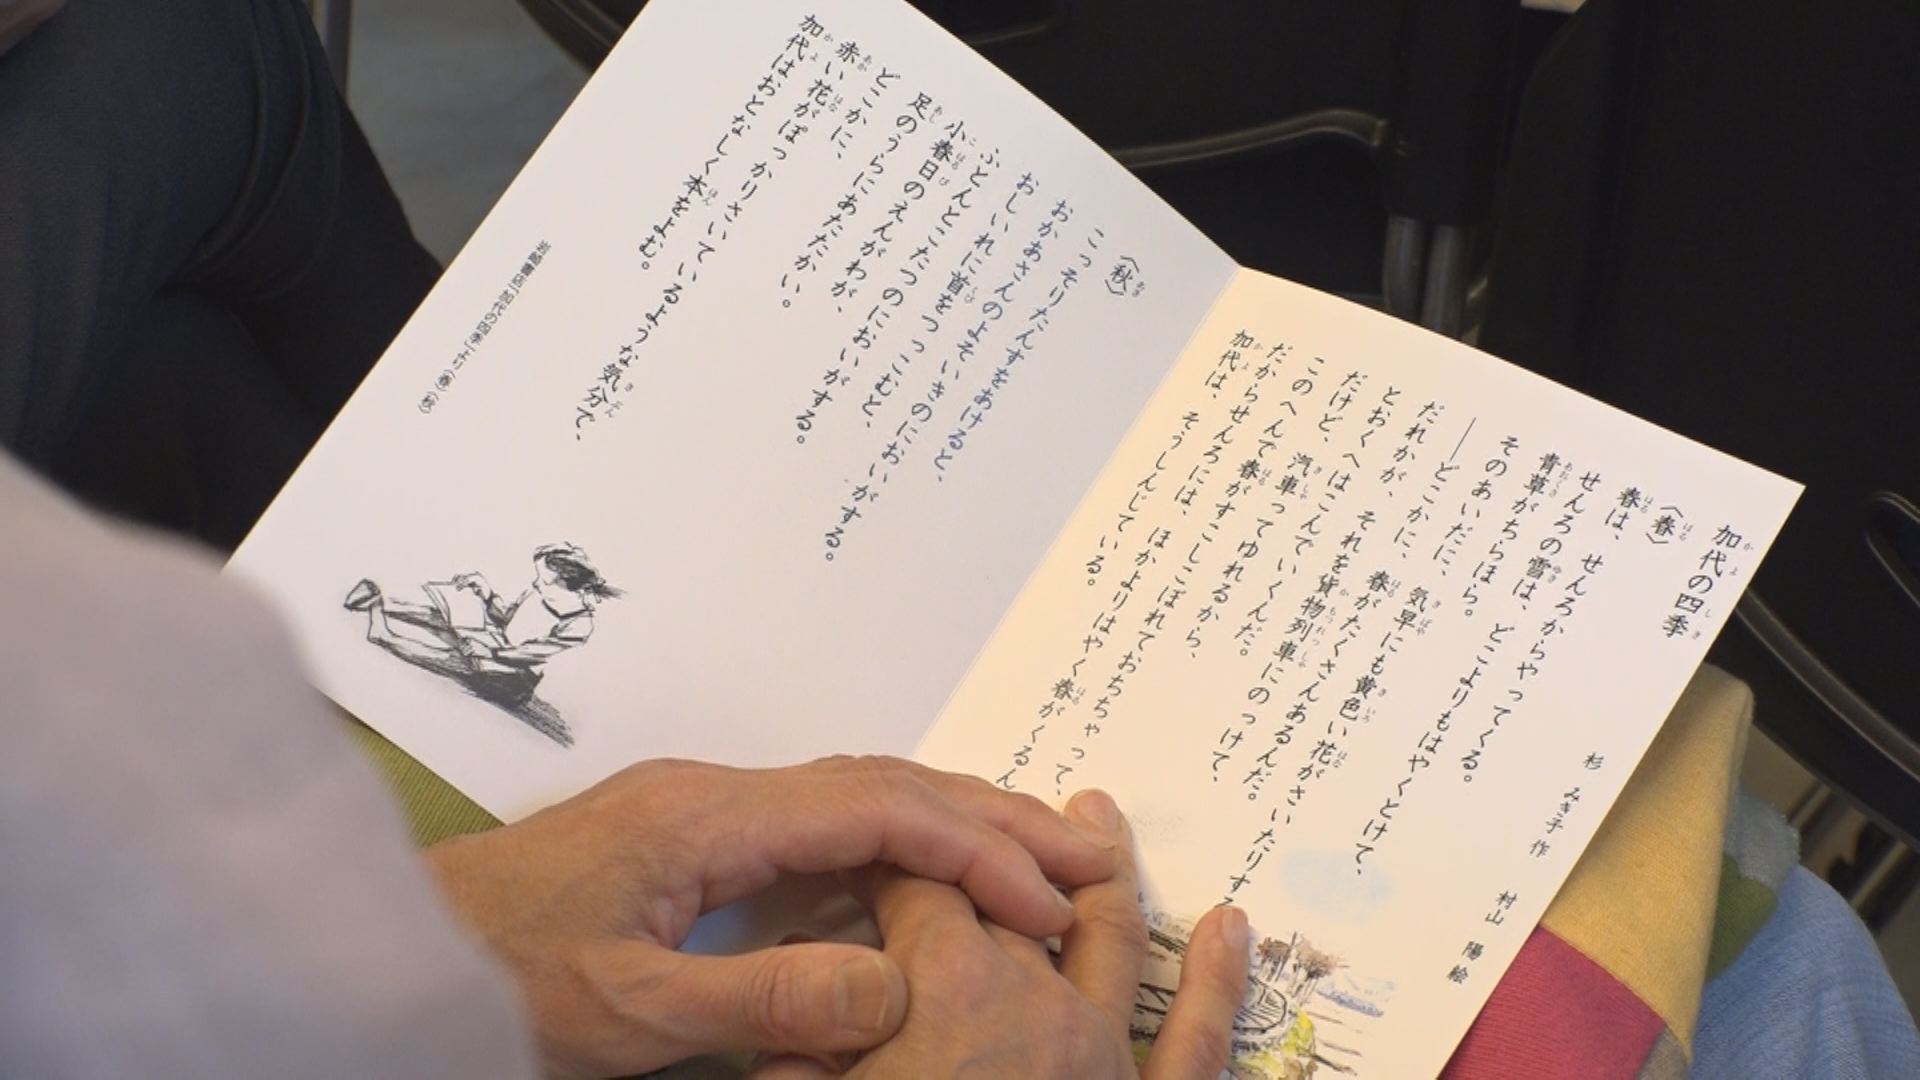 加代の四季
杉 みき子 作 村山 陽 絵
〈春〉
春は、せんろからやってくる。
せんろの雪は、どこよりもはやくとけて、
青草がちらほら。
そのあいだに、
――どこかに、気早にも黄色い花がさいたりする
だれかが、春がたくさんあるんだ。
とおくへはこんでいくんだ。それを貨物列車にのっけて、
だけど、汽車ってゆれるから、
このへんで春がすこしこぼれておちちゃって、
だからせんろには、ほかよりはやく春がくるん
加代は、そうしんじている。
〈秋〉
こっそりたんすをあけると、
おかあさんのよそいきのにおいがする。
おしいれに首をつっこむと、
ふとんとこたつのにおいがする。
小春日のえんがわが、
足のうらにあたたかい。
どこかに、
赤い花がぽっかりさいているような気分で、
加代はおとなしく本をよむ。
岩崎書店「加代の四季」より〈春〉〈秋〉